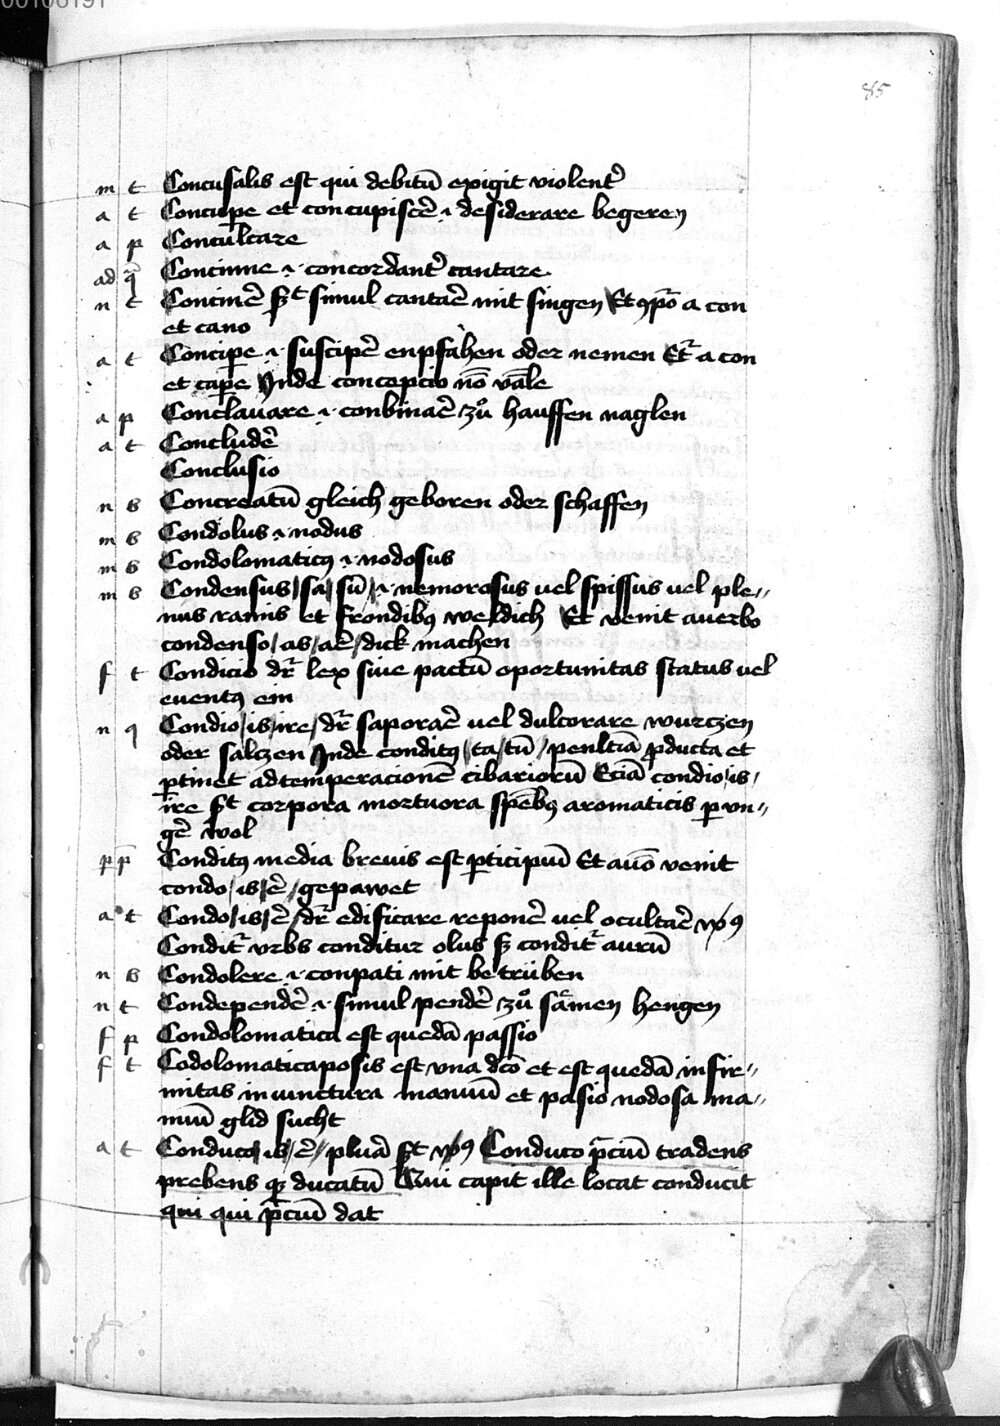 85
m t Concusalis est qui debitū exigit violent᷑
a t Concupe et concupiscē ·i· desiderare begeren
a p Conculcare
ad q̄ Concinne ·i· concordant᷑ cantare
n t Concinē sꝫ simul cantaē mit singen Et ꝯpōr a con
et cano
a t Concipe ·i· suscipē enpfahen oder nemen Et᷑ a con
et cape Inde concepcio nō vāle
a p Conclauare ·i· conbinaē zů hauffen naglen
a t Concludē
Conclusio
n s Concreatū gleich geboren oder schaffen
m s Condolus ·i· nodus
m s Condolomaticꝰ ·i· nodosus
m s Condensus/sa/sū/ ·i· nemorosus vel spissus vel ple//
nus ramis et frondibꝰ weldich Et venit auerbo
condenso/as/aē/dick machen
f t Condicio dr̄ lex siue pactū oportunitas status vel
euentꝰ ein
n q Condio/is/ire/dr̄ saporaē vel dulcorare wurczen
oder salczen Inde conditꝰ/ta/tū/penltīa ꝓducta et
ꝑtinet adtemperacionē cibariorū Eciā condio/is/
ire sꝫ corpora mortuora spēbꝰ aromaticis ꝑ vn//
gē wol
ꝑp̄ Conditꝰ media breuis est ꝑticipiū Et auō venit
condo/is/ē/gepawet
a t Condo/is/ē/dr̄ edificare reponē vel ocultaē vꝰ
Condit᷑ vrbs conditur olus sꝫ condit᷑ aurū
n s Condolere ·i· conpati mit be trüben
n t Condependē ·i· simul pendē zů sāmen hengen
f p Condolomatica est quedā passio
f t Codolomaticaposis est vna dcō et est quedā infir//
mitas in iunctura manuū et pasio nodosa ma//
nuū glid sucht
a t Conduco/is/ē/pluā sꝫ vꝰ Conduco p̄ciū tradens
prebens qꝫ ducatū Qui capit ille locat conducit
qui qui p̄ciū dat